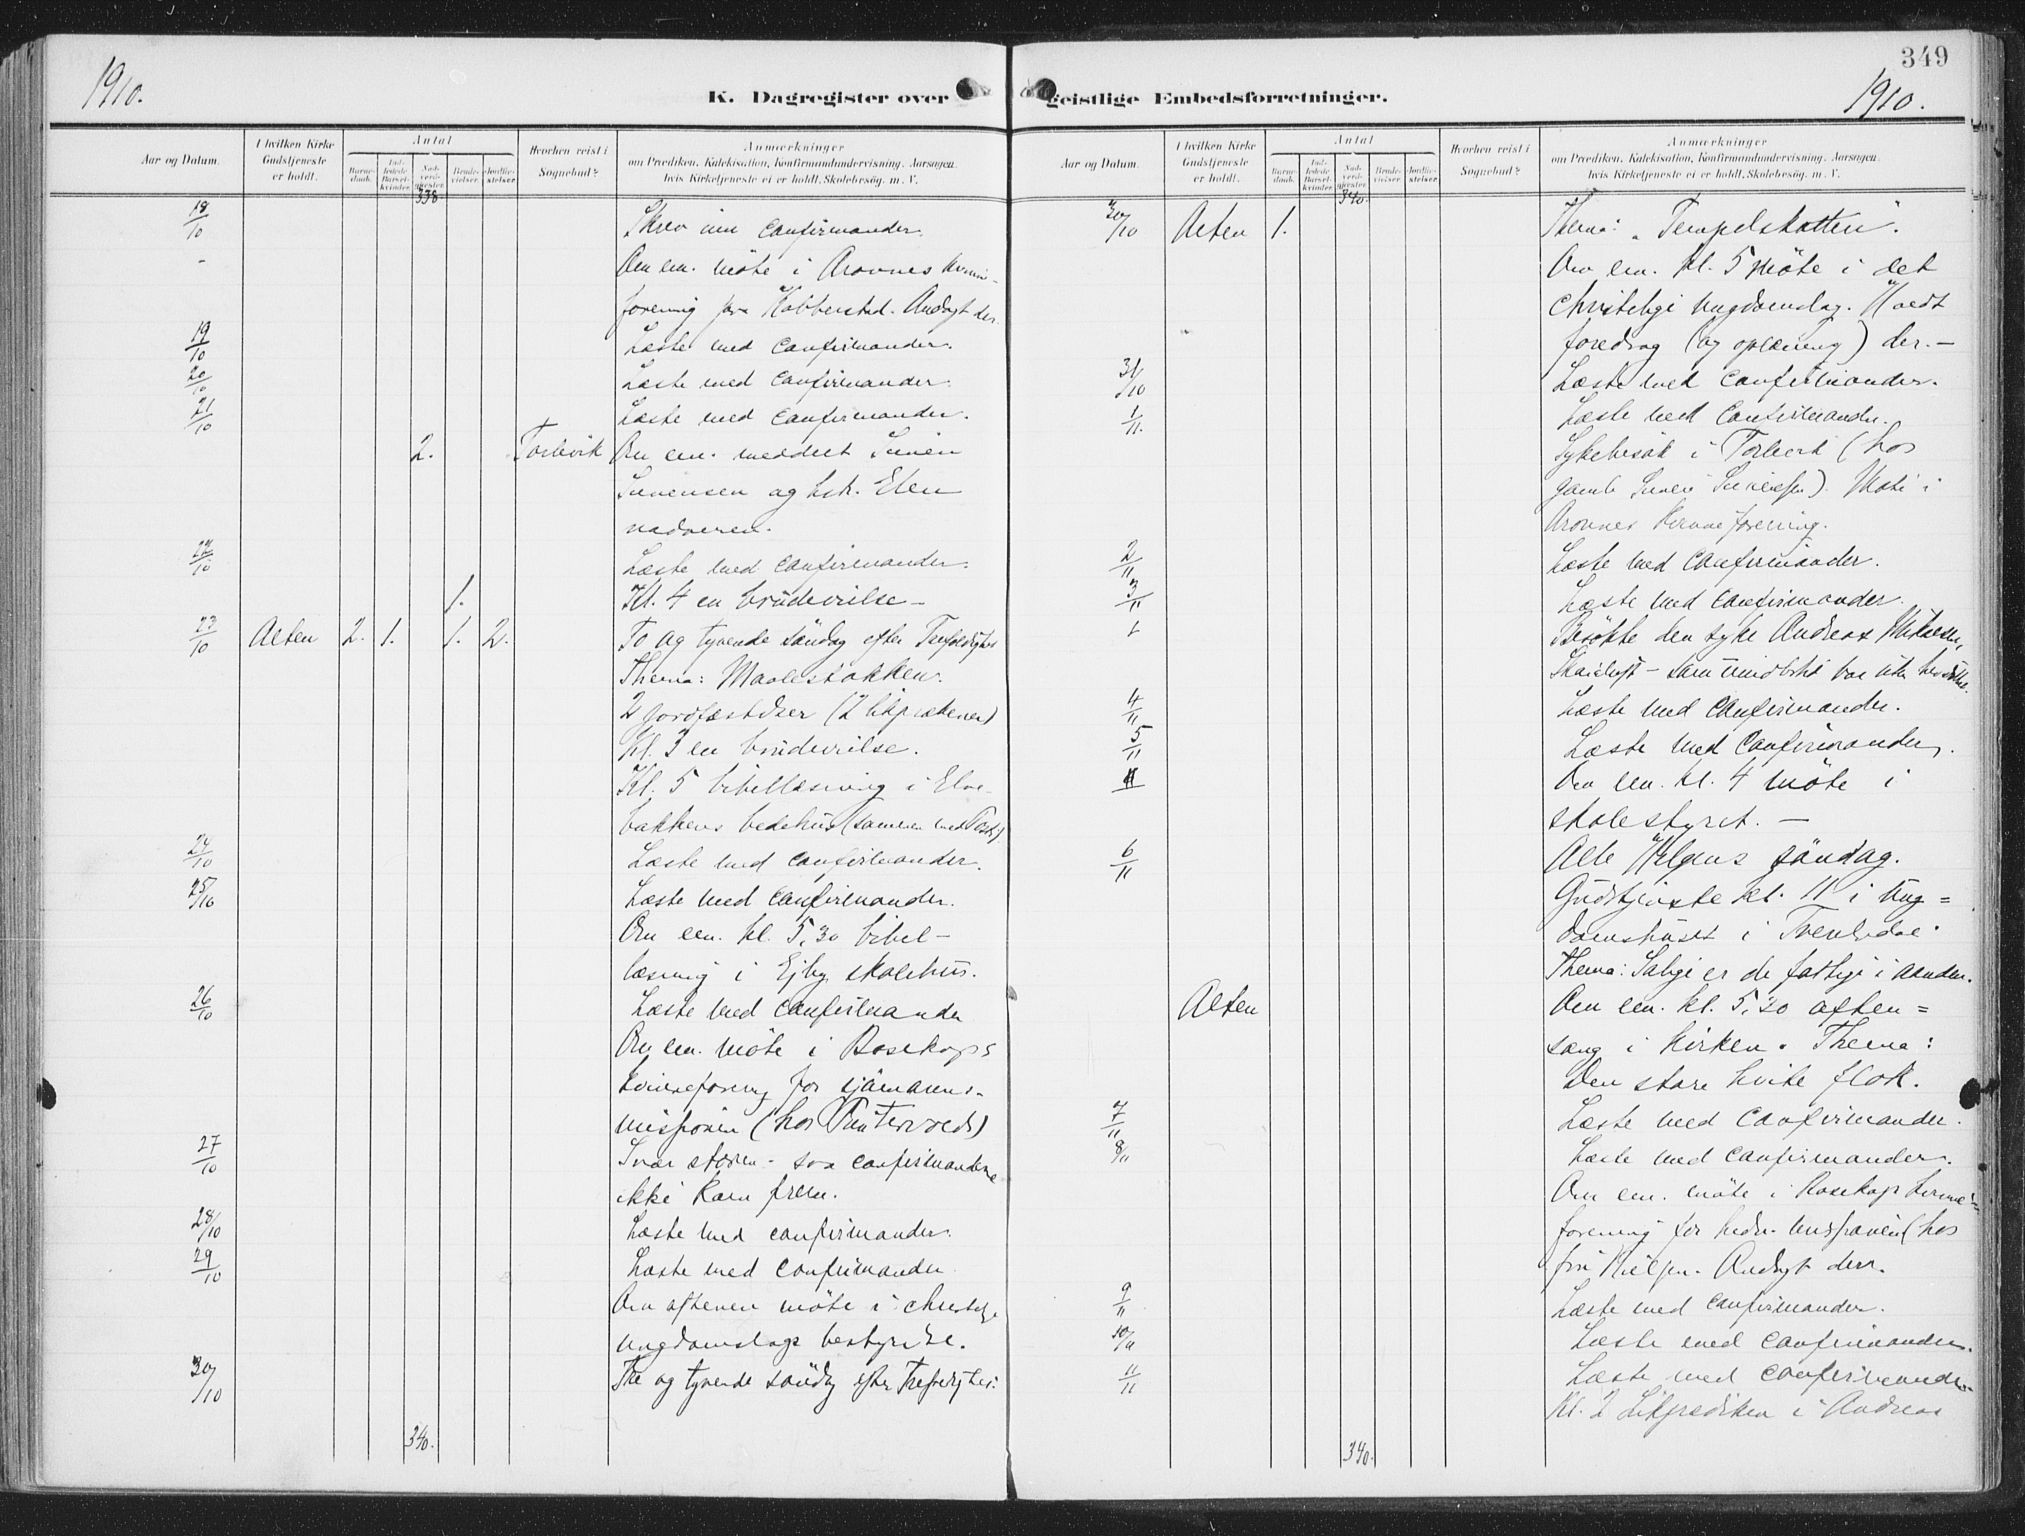 349
1910.
1910.
K. Dagregister over
geistlige Embedsforretninger.
Aar og Datum.
I hvilken Kirke Gudstjeneste er holdt.
Antal
Barnedaab.
Indledede Barselkvinder.
Nadverdgjester.
Brudevielser.
Jordfæstelser.
Hvorhen reist i Sognebud?
Anmærkninger
om Prædiken, Katekisation, Konfirmandundervisning, Aarsagen, hvis Kirketjeneste ei er holdt, Skolebesøg. m. V.
338
18/10 Skrev inn confirmander.
- Om em. møte i Aronnes kvinne-
forening paa Kobbersted. Andagt der.
19/10 Læste med confirmander.
20/10 Læste med confirmander.
21/10 Læste med confirmander.
2. Om em. meddelt
og hstr. Elen
nadveren.
22/10 Læste med confirmander.
1. Kl. 4 en brudevielse -
23/10 Alten 2. 1. 1. 2. To og tyvende søndag efter Trefoldighet
Thema: Maalestokken.
2 jordfæstelser (2 likprækener)
Kl. 3 en brudevielse.
Kl. 5 bibellæsning i Elve-
bakkens bedehus (sammen med
24/10 Læste med confirmander.
25/10 Læste med confirmander.
Om em. kl. 5,30 bibel-
læsning i Ejby skolehus.
26/10 Læste med confirmander
Om em. møte i Bosekops
kvinneforening for sjømanns-
missionen (hos
27/10 Svær storm - saa confirmanderne
ikke kom frem.
28/10 Læste med confirmander.
29/10 Læste med confirmander.
Om aftenen møte i christelige
ungdomslags bestyrelse.
30/10 Tre og tyvende søndag efter Trefoldighet:
340.
Aar og Datum.
I hvilken Kirke Gudstjeneste er holdt.
Antal
Barnedaab.
Indledede Barselkvinder.
Nadverdgjester.
Brudevielser.
Jordfæstelser.
Hvorhen reist i Sognebud?
Anmærkninger
om Prædiken, Katekisation, Konfirmandundervisning, Aarsagen, hvis Kirketjeneste ei er holdt, Skolebesøg. m. V.
340.
30/10 Alten 1. Thema: "Tempelskatten".
Om em. kl. 5 møte i det
christelige ungdomslag. Holdt
foredrag (og oplæsning) der. -
31/10 Læste med confirmander.
1/11. Læste med confirmander.
Sykebesøk i (hos
gamle Møte i
Aronnes kvinneforening.
2/11 Læste med confirmander.
3/11 Læste med confirmander.
Besøkte den syke Andreas Mikkelsen,
- som imidlertid var uten bevissthet.
4/11 Læste med confirmander.
5/11 Læste med confirmander.
Om em. kl. 4 møte i
skolestyret. -
6/11 Alle Helgens søndag.
Gudstjeneste kl. 11 i ung=
domshuset i Tverelvdal.
Thema: Salige er de fattige i aanden.
Alten Om em. kl. 5,30 aften=
sang i kirken. Thema:
Den store hvite flok.
7/11 Læste med confirmander.
8/11 Læste med confirmander.
Om em. møte i Bosekop kvinne=
forening for hedn. missionen (hos
fru Nielsen. Andagt der.
9/11 Læste med confirmander.
10/11 Læste med confirmander.
11/11 Læste med confirmander.
Kl. 2 Likprediken i Andreas
340.